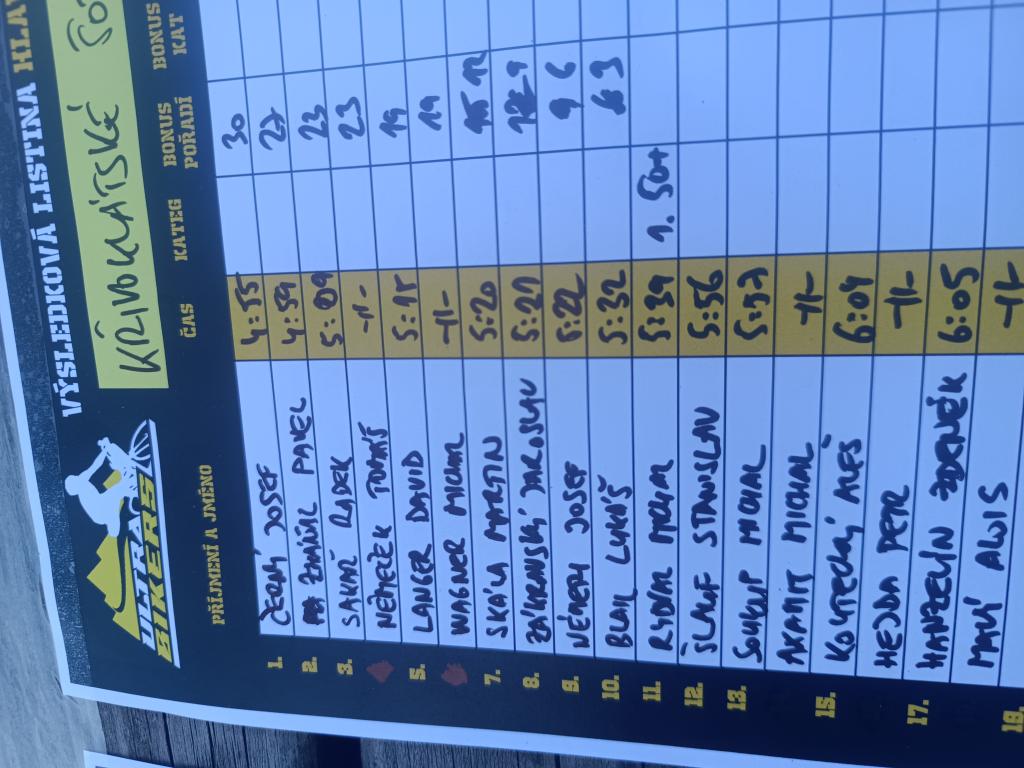 VÝSLEDKOVÁ LISTINA HLAV
KŘIVOKLÁTSKÉ ŠOT
ULTRA BIKERS
PŘÍJMENÍ A JMÉNO ČAS KATEG BONUS POŘADÍ BONUS KAT
1. ČERNÝ JOSEF 4:55 30
2. ZMAŽIL PAVEL 4:59 27
3. SAKAŘ RADEK 5:09 23
NĚMEČEK TOMÁŠ -11- 23
5. LANGER DAVID 5:15 19
WAGNER MICHAL -11- 19
7. SKÁLA MARTIN 5:20 12
8. ZÁKRAVSKÝ JAROSLAV 5:21 9
9. NÉMETH JOSEF 5:22 6
10. BLAIL LUKÁŠ 5:32 3
11. RYDVAL MICHAL 5:39 1. 50+
12. ŠLAUF STANISLAV 5:56
13. SOUKUP MICHAL 5:57
AXAMIT MICHAL -11-
15. KOUTECKÝ ALEŠ 6:04
HEJDA PETR -11-
17. HANZELÍN ZDENĚK 6:05
MALÝ ALOIS -11-
19.